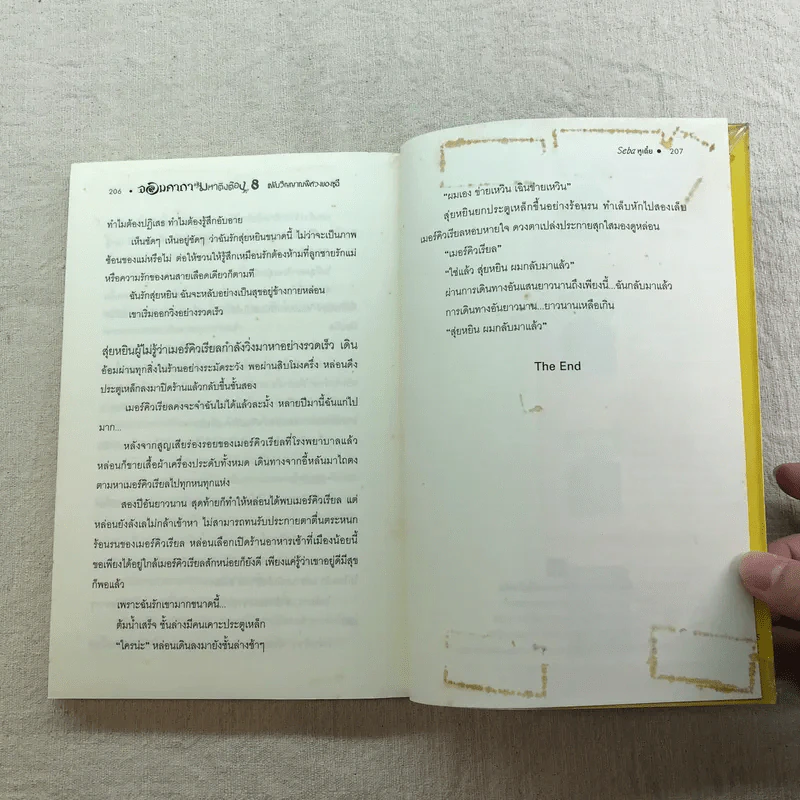 206 • จอมคาถามหาอิงธิปู 8 ฉบับวิญญาณพิศวงของซูอี
ทำไมต้องปฏิเสธ ทำไมต้องรู้สึกอับอาย
เห็นชัดๆ เห็นอยู่ชัดๆ ว่าฉันรักสุ่ยหยินขนาดนี้ ไม่ว่าจะเป็นภาพ
ซ้อนของแม่หรือไม่ ต่อให้ชวนให้รู้สึกเหมือนรักต้องห้ามที่ลูกชายรักแม่
หรือความรักของคนสายเลือดเดียวก็ตามที
ฉันรักสุ่ยหยิน ฉันจะหลับอย่างเป็นสุขอยู่ข้างกายหล่อน
เขาเริ่มออกวิ่งอย่างรวดเร็ว
สุ่ยหยินผู้ไม่รู้ว่าเมอร์คิวเรียลกำลังวิ่งมาหาอย่างรวดเร็ว เดิน
อ้อมผ่านทุกสิ่งในร้านอย่างระมัดระวัง พอผ่านสิบโมงครึ่ง หล่อนดึง
ประตูเหล็กลงมาปิดร้านแล้วกลับขึ้นชั้นสอง
เมอร์คิวเรียลคงจะจำฉันไม่ได้แล้วละมั้ง หลายปีมานี้ฉันแก่ไป
มาก...
หลังจากสูญเสียร่องรอยของเมอร์คิวเรียลที่โรงพยาบาลแล้ว
หล่อนก็ขายเสื้อผ้าเครื่องประดับทั้งหมด เดินทางจากอี้หลันมาไถตง
ตามหาเมอร์คิวเรียลไปทุกหนทุกแห่ง
สองปีอันยาวนาน สุดท้ายก็ทำให้หล่อนได้พบเมอร์คิวเรียล แต่
หล่อนยังลังเลไม่กล้าเข้าหา ไม่สามารถทนรับประกายตาตื่นตระหนก
ร้อนรนของเมอร์คิวเรียล หล่อนเลือกเปิดร้านอาหารเช้าที่เมืองน้อยนี้
ขอเพียงได้อยู่ใกล้เมอร์คิวเรียลสักหน่อยก็ยังดี เพียงแค่รู้ว่าเขาอยู่ดีมีสุข
ก็พอแล้ว
เพราะฉันรักเขามากขนาดนี้...
ต้มน้ำเสร็จ ชั้นล่างมีคนเคาะประตูเหล็ก
“ใครน่ะ” หล่อนเดินลงมายังชั้นล่างช้าๆ
Seba หูเตี๋ย • 207
“ผมเอง ช่ายเหวิน เฉินช่ายเหวิน”
สุ่ยหยินยกประตูเหล็กขึ้นอย่างร้อนรน ทำเล็บหักไปสองเล็บ
เมอร์คิวเรียลหอบหายใจ ดวงตาเปล่งประกายสุกใสมองดูหล่อน
“เมอร์คิวเรียล”
“ใช่แล้ว สุ่ยหยิน ผมกลับมาแล้ว”
ผ่านการเดินทางอันแสนยาวนานถึงเพียงนี้...ฉันกลับมาแล้ว
การเดินทางอันยาวนาน...ยาวนานเหลือเกิน
“สุ่ยหยิน ผมกลับมาแล้ว”
The End